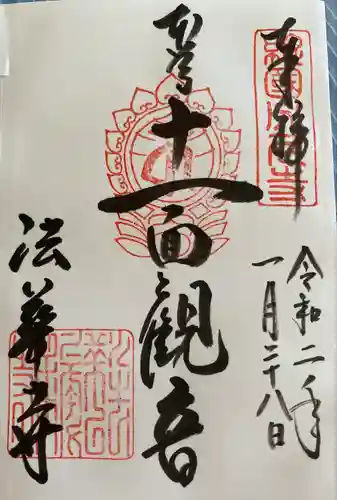 奉拝
令和二年
一月二十八日
本尊十一面観音
法華寺